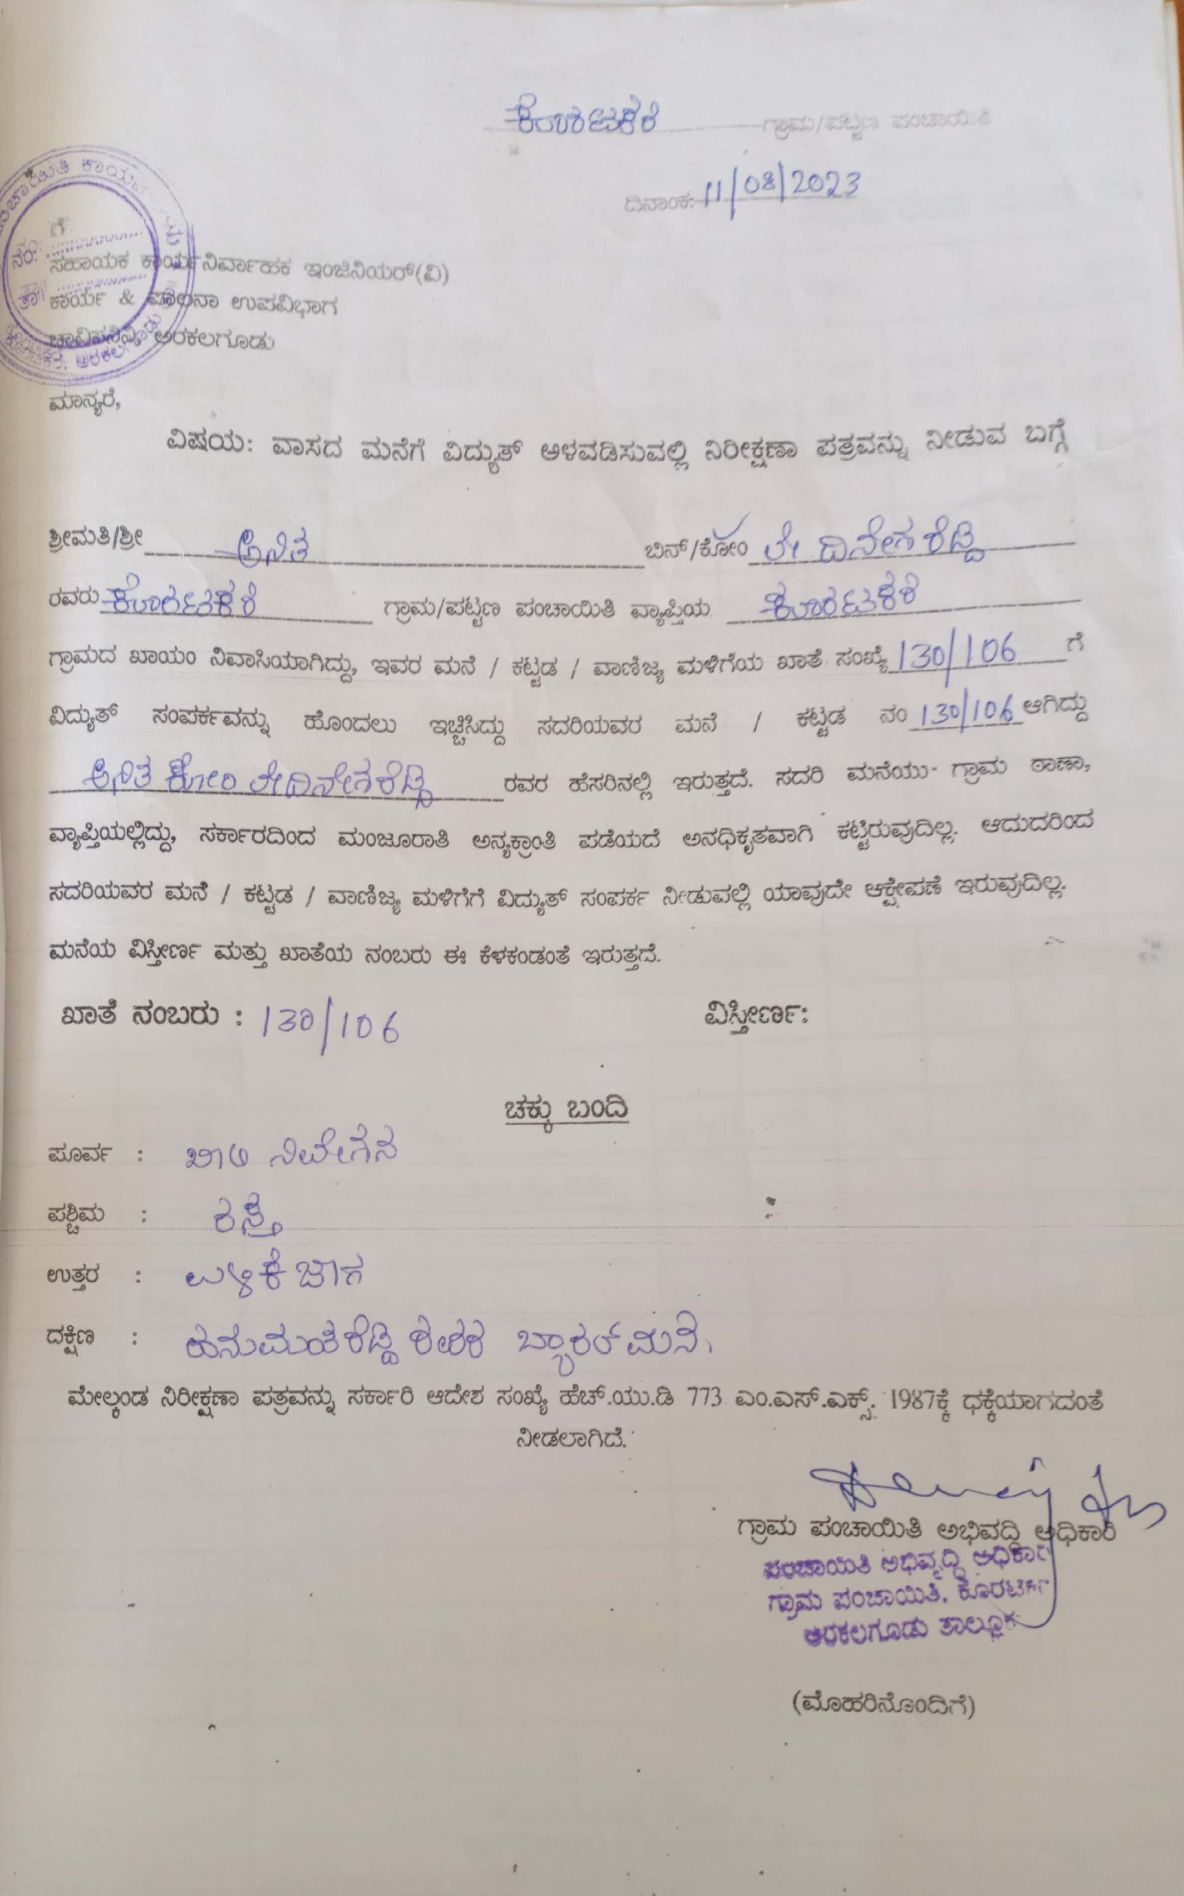 ಕೊರಟಿಕೆರೆ ಗ್ರಾಮ/ಪಟ್ಟಣ ಪಂಚಾಯಿತಿ
ದಿನಾಂಕ: 11/08/2023
ಗೆ
ಸಹಾಯಕ ಕಾರ್ಯನಿರ್ವಾಹಕ ಇಂಜಿನಿಯರ್(ವಿ)
ಕಾರ್ಯ & ಪಾಲನಾ ಉಪವಿಭಾಗ
ಚಾವಿಸನಿನಿ, ಅರಕಲಗೂಡು
ಮಾನ್ಯರೆ,
ವಿಷಯ: ವಾಸದ ಮನೆಗೆ ವಿದ್ಯುತ್ ಅಳವಡಿಸುವಲ್ಲಿ ನಿರೀಕ್ಷಣಾ ಪತ್ರವನ್ನು ನೀಡುವ ಬಗ್ಗೆ
ಶ್ರೀಮತಿ/ಶ್ರೀ ಅನಿತ ಬಿನ್/ಕೋಂ ಲೇ ದಿನೇಶ ಶೆಟ್ಟಿ
ರವರು ಕೊರಟಿಕೆರೆ ಗ್ರಾಮ/ಪಟ್ಟಣ ಪಂಚಾಯಿತಿ ವ್ಯಾಪ್ತಿಯ ಕೊರಟಿಕೆರೆ
ಗ್ರಾಮದ ಖಾಯಂ ನಿವಾಸಿಯಾಗಿದ್ದು, ಇವರ ಮನೆ / ಕಟ್ಟಡ / ವಾಣಿಜ್ಯ ಮಳಿಗೆಯ ಖಾತೆ ಸಂಖ್ಯೆ 130/106 ಗೆ
ವಿದ್ಯುತ್ ಸಂಪರ್ಕವನ್ನು ಹೊಂದಲು ಇಚ್ಚಿಸಿದ್ದು ಸದರಿಯವರ ಮನೆ / ಕಟ್ಟಡ ನಂ 130/106 ಆಗಿದ್ದು
ಅನಿತ ಕೋಂ ಲೇ ದಿನೇಶ ಶೆಟ್ಟಿ ರವರ ಹೆಸರಿನಲ್ಲಿ ಇರುತ್ತದೆ. ಸದರಿ ಮನೆಯು- ಗ್ರಾಮ ಠಾಣಾ,
ವ್ಯಾಪ್ತಿಯಲ್ಲಿದ್ದು, ಸರ್ಕಾರದಿಂದ ಮಂಜೂರಾತಿ ಅನ್ಯಕ್ರಾಂತಿ ಪಡೆಯದೆ ಅನಧಿಕೃತವಾಗಿ ಕಟ್ಟಿರುವುದಿಲ್ಲ. ಆದುದರಿಂದ
ಸದರಿಯವರ ಮನೆ / ಕಟ್ಟಡ / ವಾಣಿಜ್ಯ ಮಳಿಗೆಗೆ ವಿದ್ಯುತ್ ಸಂಪರ್ಕ ನೀಡುವಲ್ಲಿ ಯಾವುದೇ ಆಕ್ಷೇಪಣೆ ಇರುವುದಿಲ್ಲ.
ಮನೆಯ ವಿಸ್ತೀರ್ಣ ಮತ್ತು ಖಾತೆಯ ನಂಬರು ಈ ಕೆಳಕಂಡಂತೆ ಇರುತ್ತದೆ.
ಖಾತೆ ನಂಬರು : 130/106 ವಿಸ್ತೀರ್ಣ:
ಚಕ್ಕು ಬಂದಿ
ಪೂರ್ವ : ಖಾಲಿ ನಿವೇಶನ
ಪಶ್ಚಿಮ : ರಸ್ತೆ
ಉತ್ತರ : ಉಳಿಕೆ ಜಾಗ
ದಕ್ಷಿಣ : ಹನುಮಂತಶೆಟ್ಟಿ ಮನೆ.
ಮೇಲ್ಕಂಡ ನಿರೀಕ್ಷಣಾ ಪತ್ರವನ್ನು ಸರ್ಕಾರಿ ಆದೇಶ ಸಂಖ್ಯೆ ಹೆಚ್.ಯು.ಡಿ 773 ಎಂ.ಎಸ್.ಎಕ್ಸ್. 1987ಕ್ಕೆ ಧಕ್ಕೆಯಾಗದಂತೆ
ನೀಡಲಾಗಿದೆ.
ಗ್ರಾಮ ಪಂಚಾಯಿತಿ ಅಭಿವದ್ಧಿ ಅಧಿಕಾರಿ
ಪಂಚಾಯಿತಿ ಅಭಿವೃದ್ಧಿ ಅಧಿಕಾರಿ
ಗ್ರಾಮ ಪಂಚಾಯಿತಿ, ಕೊರಟಿಕೆರೆ
ಅರಕಲಗೂಡು ತಾಲ್ಲೂಕು
(ಮೊಹರಿನೊಂದಿಗೆ)